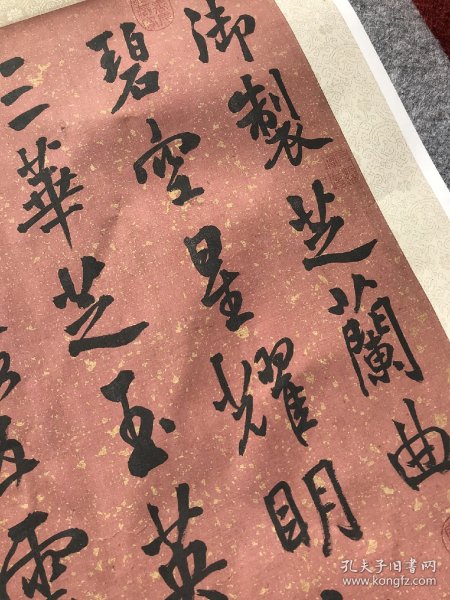 御製芝蘭曲
碧空星耀明
三華芝玉英
雲
孔夫子旧书网
www.kongfz.com